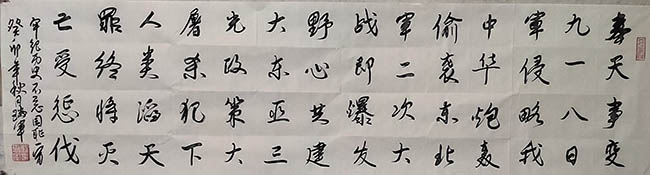 奉天事变
九一八日
軍侵略我
中华炮轰
偷袭东北
軍二次大
战即爆发
野心共建
大东亚三
光政策大
屠杀犯下
人类滔天
罪终将灭
亡受惩伐
牢记历史不忘国耻
癸卯年秋月瑞軍